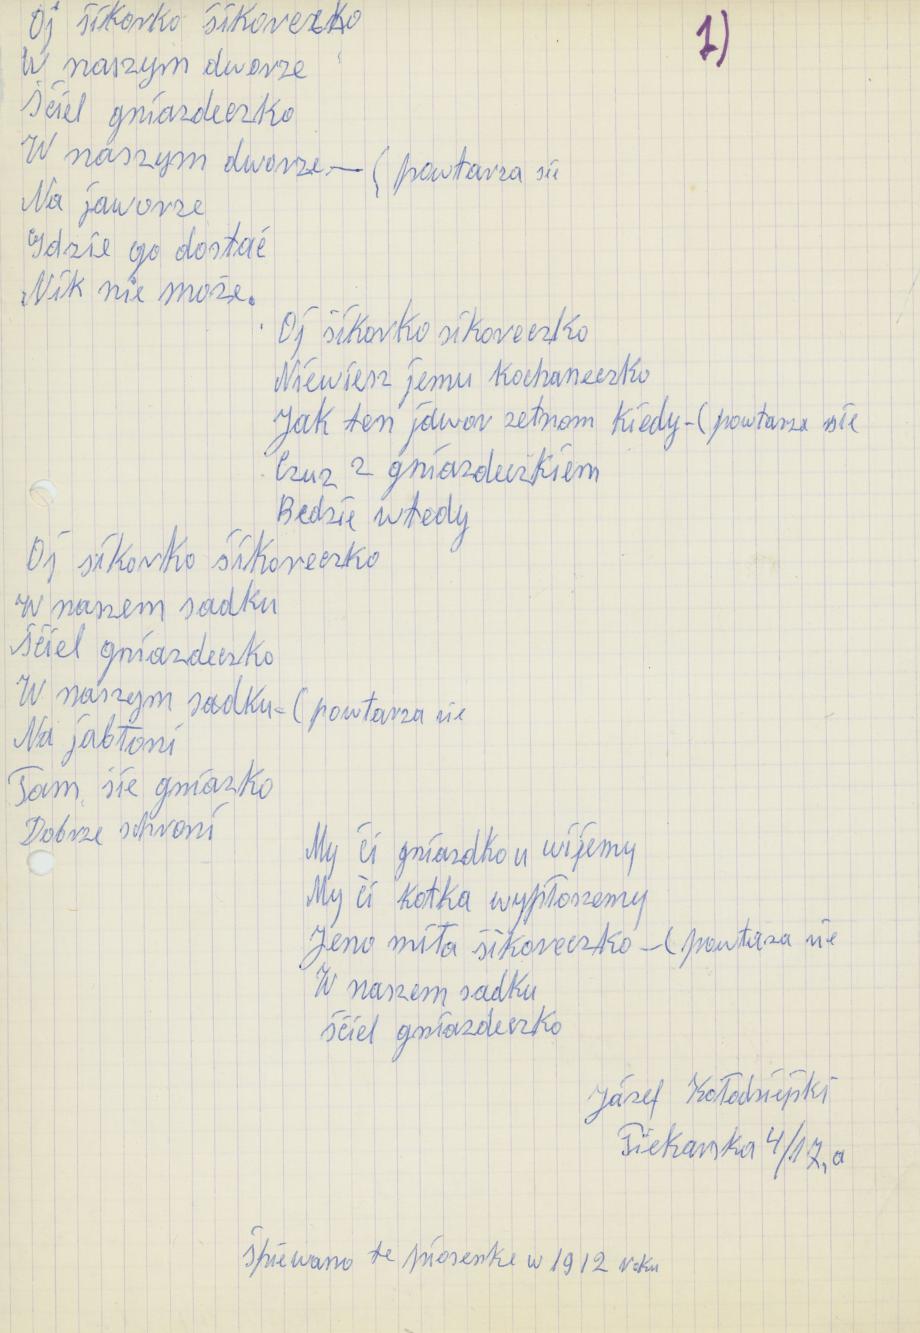 1)
Oj sikorko sikoreczko
W naszym dworze
Ściel gniazdeczko
W naszym dworze – ( powtarza sie
Na jaworze
Gdzie go dostać
Nik nie może.
Oj sikorko sikoreczko
Niewiesz jemu kochaneczko
Jak ten jawor zetnom kiedy – ( powtarza sie
Czuz z gniazdeczkiem
Bedzie wtedy
Oj sikorko sikoreczko
W naszem sadku
Ściel gniazdeczko
W naszym sadku – ( powtarza sie
Na jabłoni
Tam sie gniazko
Dobrze schroni
My ci gniazdko uwijemy
My ci kotka wypłoszemy
Jeno miła sikoreczko – ( powtaza sie
W naszem sadku
ściel gniazdeczko
Józef Kołodziejski
Piekarska 4/17,a
śpiewano te piosenke w 1912 roku